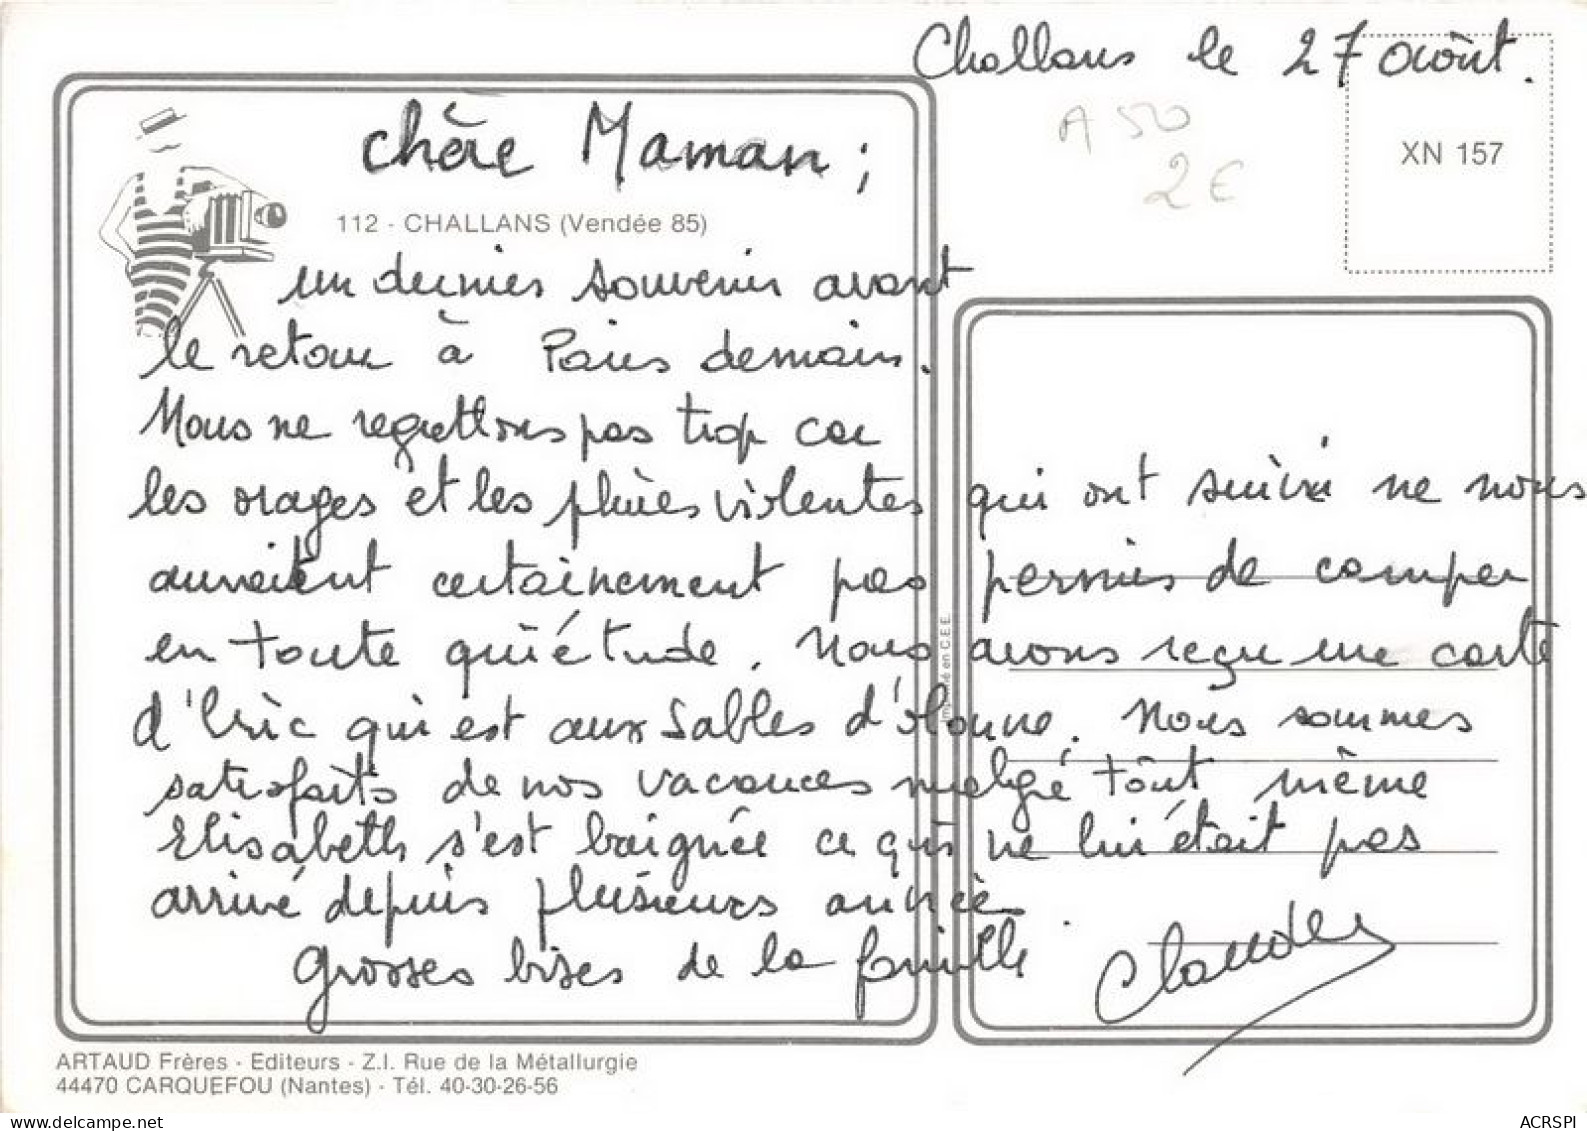 Challans le 27 août.
A 50
2€
XN 157
chère Maman ;
112 - CHALLANS (Vendée 85)
un dernier souvenir avant
le retour à Paris demain.
Nous ne regrettons pas trop car
les orages et les pluies violentes qui ont suivi ne nous
auraient certainement pas permis de camper
en toute quiétude. Nous avons reçu une carte
d'Eric qui est aux Sables d'olonne. Nous sommes
satisfaits de nos vacances malgré tout même
Elisabeth s'est baignée ce qui ne lui était pas
arrivé depuis plusieurs année
grosses bises de la famille.
Claude
Imprimé en C.E.E.
ARTAUD Frères - Editeurs - Z.I. Rue de la Métallurgie
44470 CARQUEFOU (Nantes) - Tél. 40-30-26-56
www.delcampe.net
ACRSPI